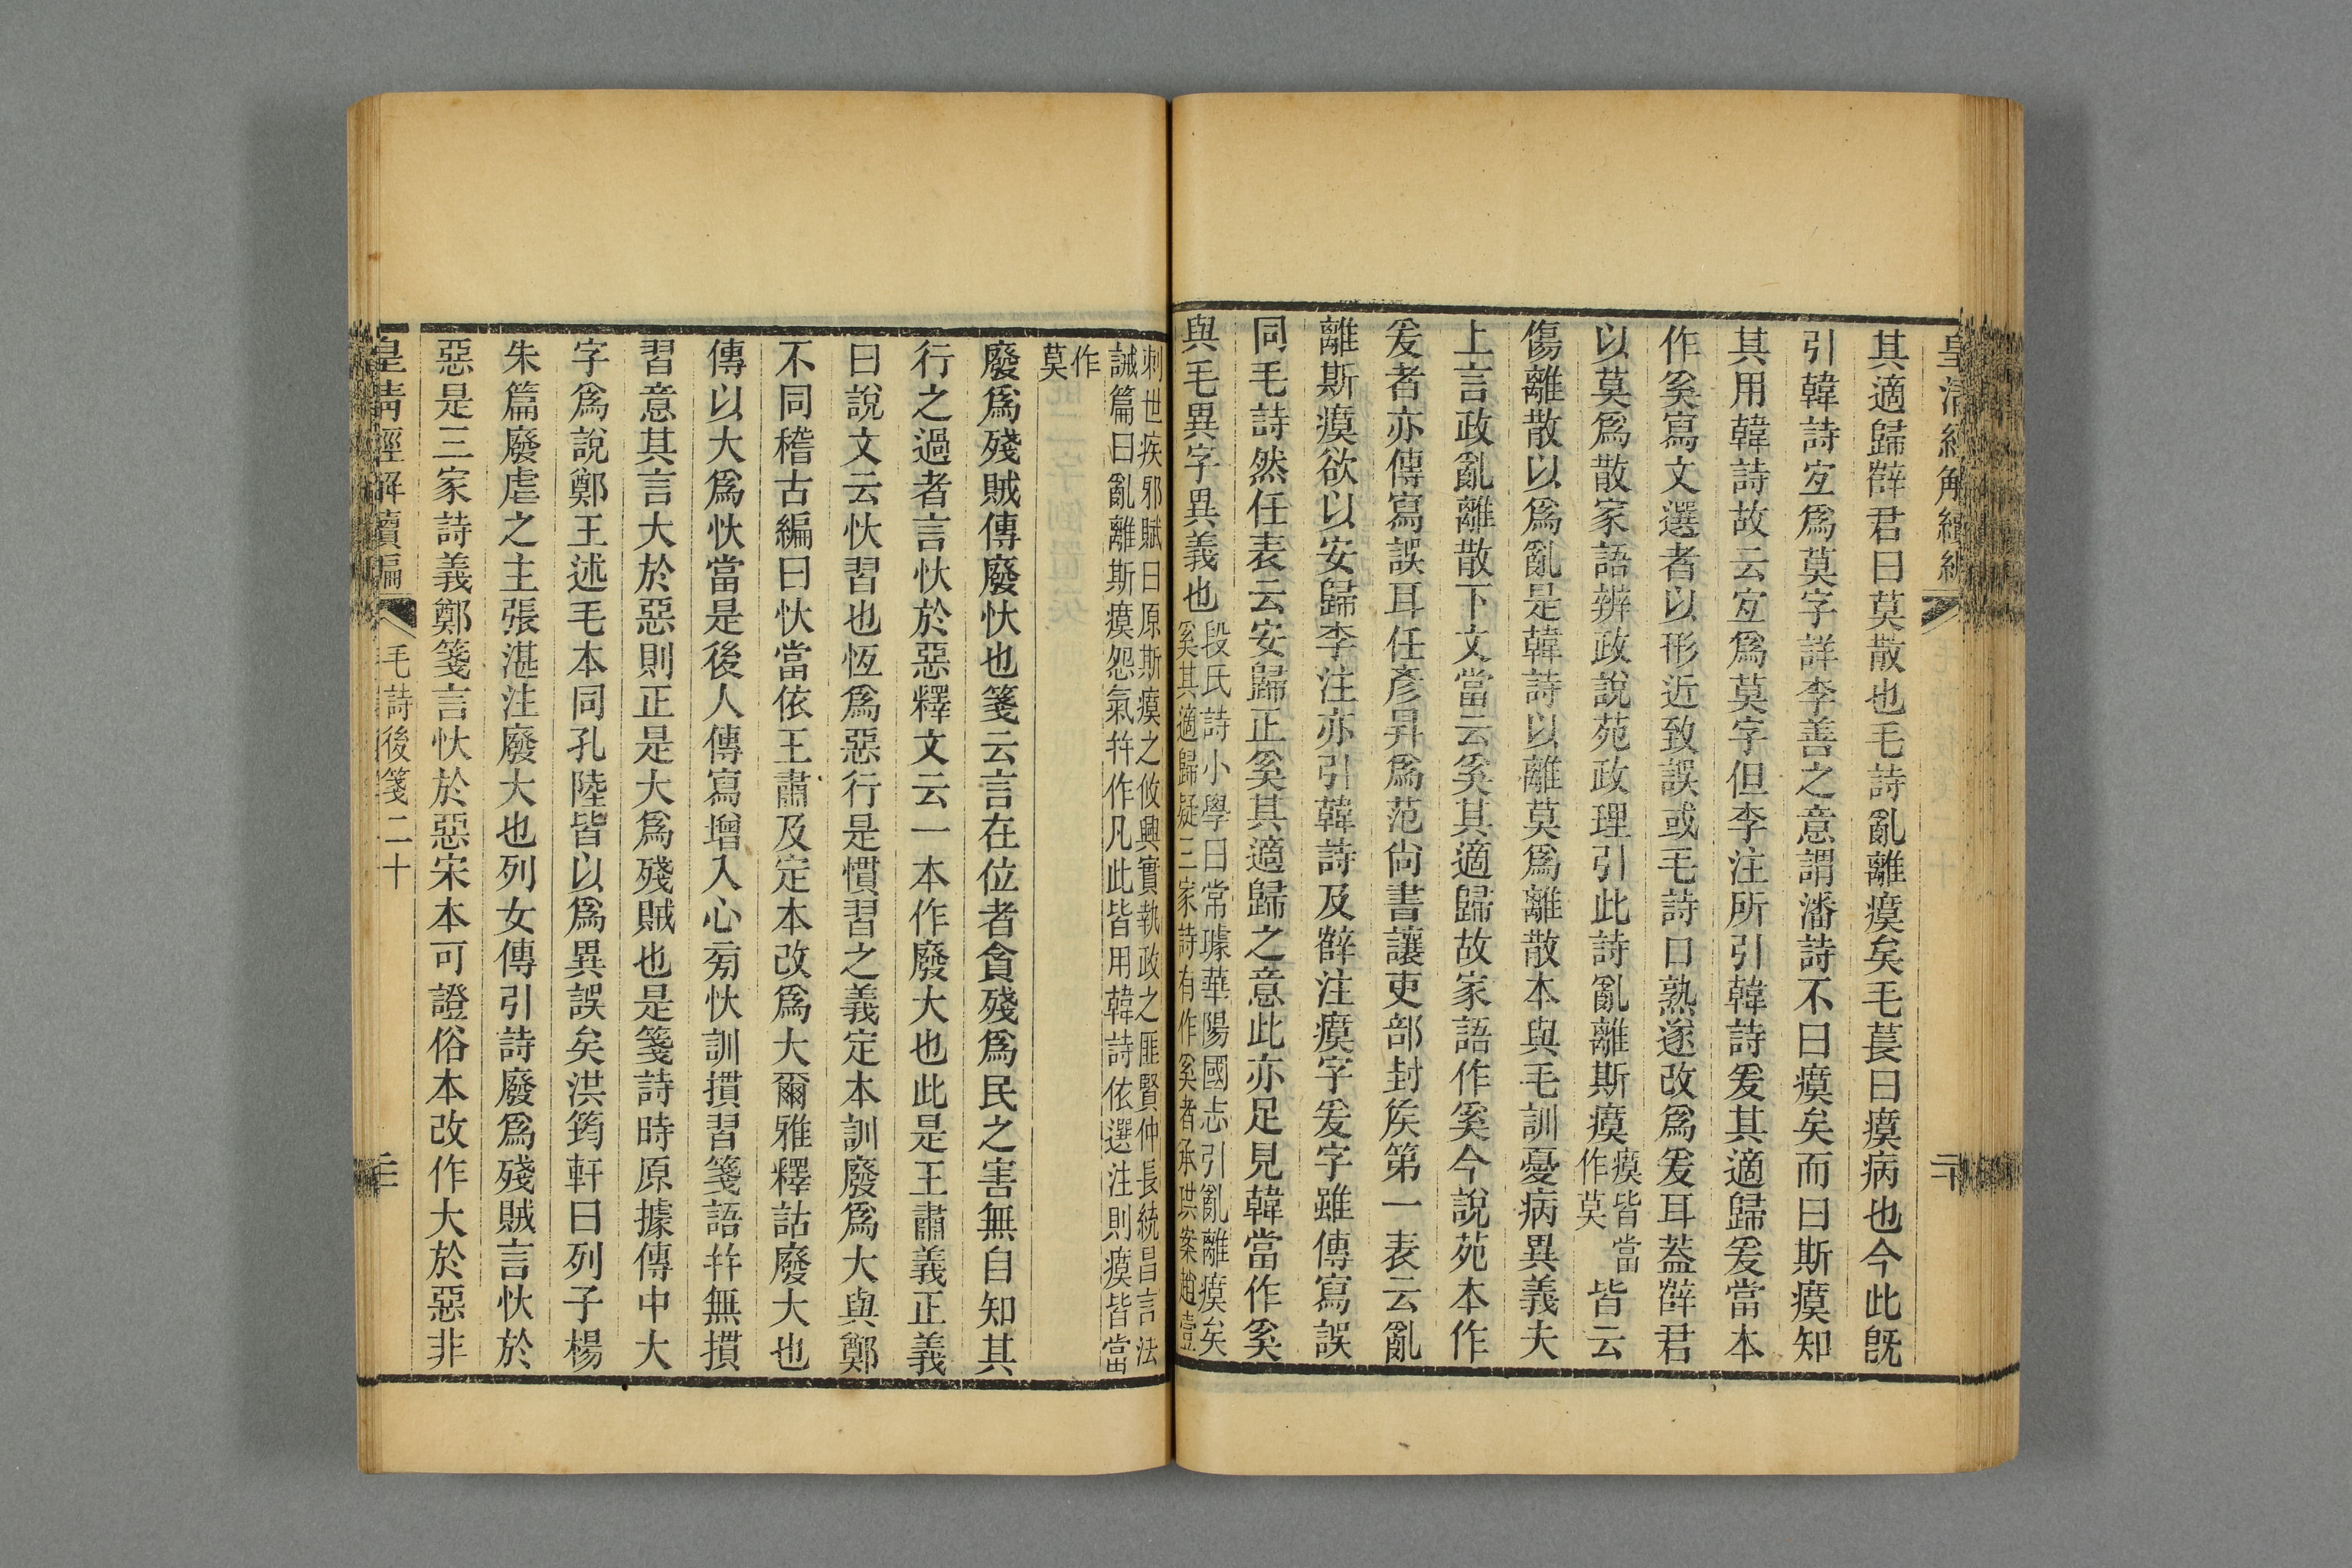 皇清經解續編
其適歸薛君曰莫散也毛詩亂離瘼矣毛萇曰瘼病也今此既
引韓詩宐爲莫字詳李善之意謂潘詩不曰瘼矣而曰斯瘼知
其用韓詩故云宐爲莫字但李注所引韓詩爰其適歸爰當本
作奚寫文選者以形近致誤或毛詩口熟遂改爲爰耳葢薛君
以莫爲散家語辨政說苑政理引此詩亂離斯瘼瘼皆當作莫皆云
傷離散以爲亂是韓詩以離莫爲離散本與毛訓憂病異義夫
上言政亂離散下文當云奚其適歸故家語作奚今說苑本作
爰者亦傳寫誤耳任彥昇爲范尙書讓吏部封矦第一表云亂
離斯瘼欲以安歸李注亦引韓詩及薛注瘼字爰字雖傳寫誤
同毛詩然任表云安歸正奚其適歸之意此亦足見韓當作奚
與毛異字異義也段氏詩小學曰常璩華陽國志引亂離瘼矣奚其適歸疑三家詩有作奚者承珙案趙壹
刺世疾邪賦曰原斯瘼之攸興實執政之匪賢仲長統昌言法
誡篇曰亂離斯瘼怨氣幷作凡此皆用韓詩依選注則瘼皆當
作莫
廢爲殘賊傳廢忕也箋云言在位者貪殘爲民之害無自知其
行之過者言忕於惡釋文云一本作廢大也此是王肅義正義
曰說文云忕習也恆爲惡行是慣習之義定本訓廢爲大與鄭
不同稽古編曰忕當依王肅及定本改爲大爾雅釋詁廢大也
傳以大爲忕當是後人傳寫增入心㫄忕訓摜習箋語幷無摜
習意其言大於惡則正是大爲殘賊也是箋詩時原據傳中大
字爲說鄭王述毛本同孔陸皆以爲異誤矣洪筠軒曰列子楊
朱篇廢虐之主張湛注廢大也列女傳引詩廢爲殘賊言忕於
惡是三家詩義鄭箋言忕於惡宋本可證俗本改作大於惡非
皇淸經解續編 毛詩後箋二十